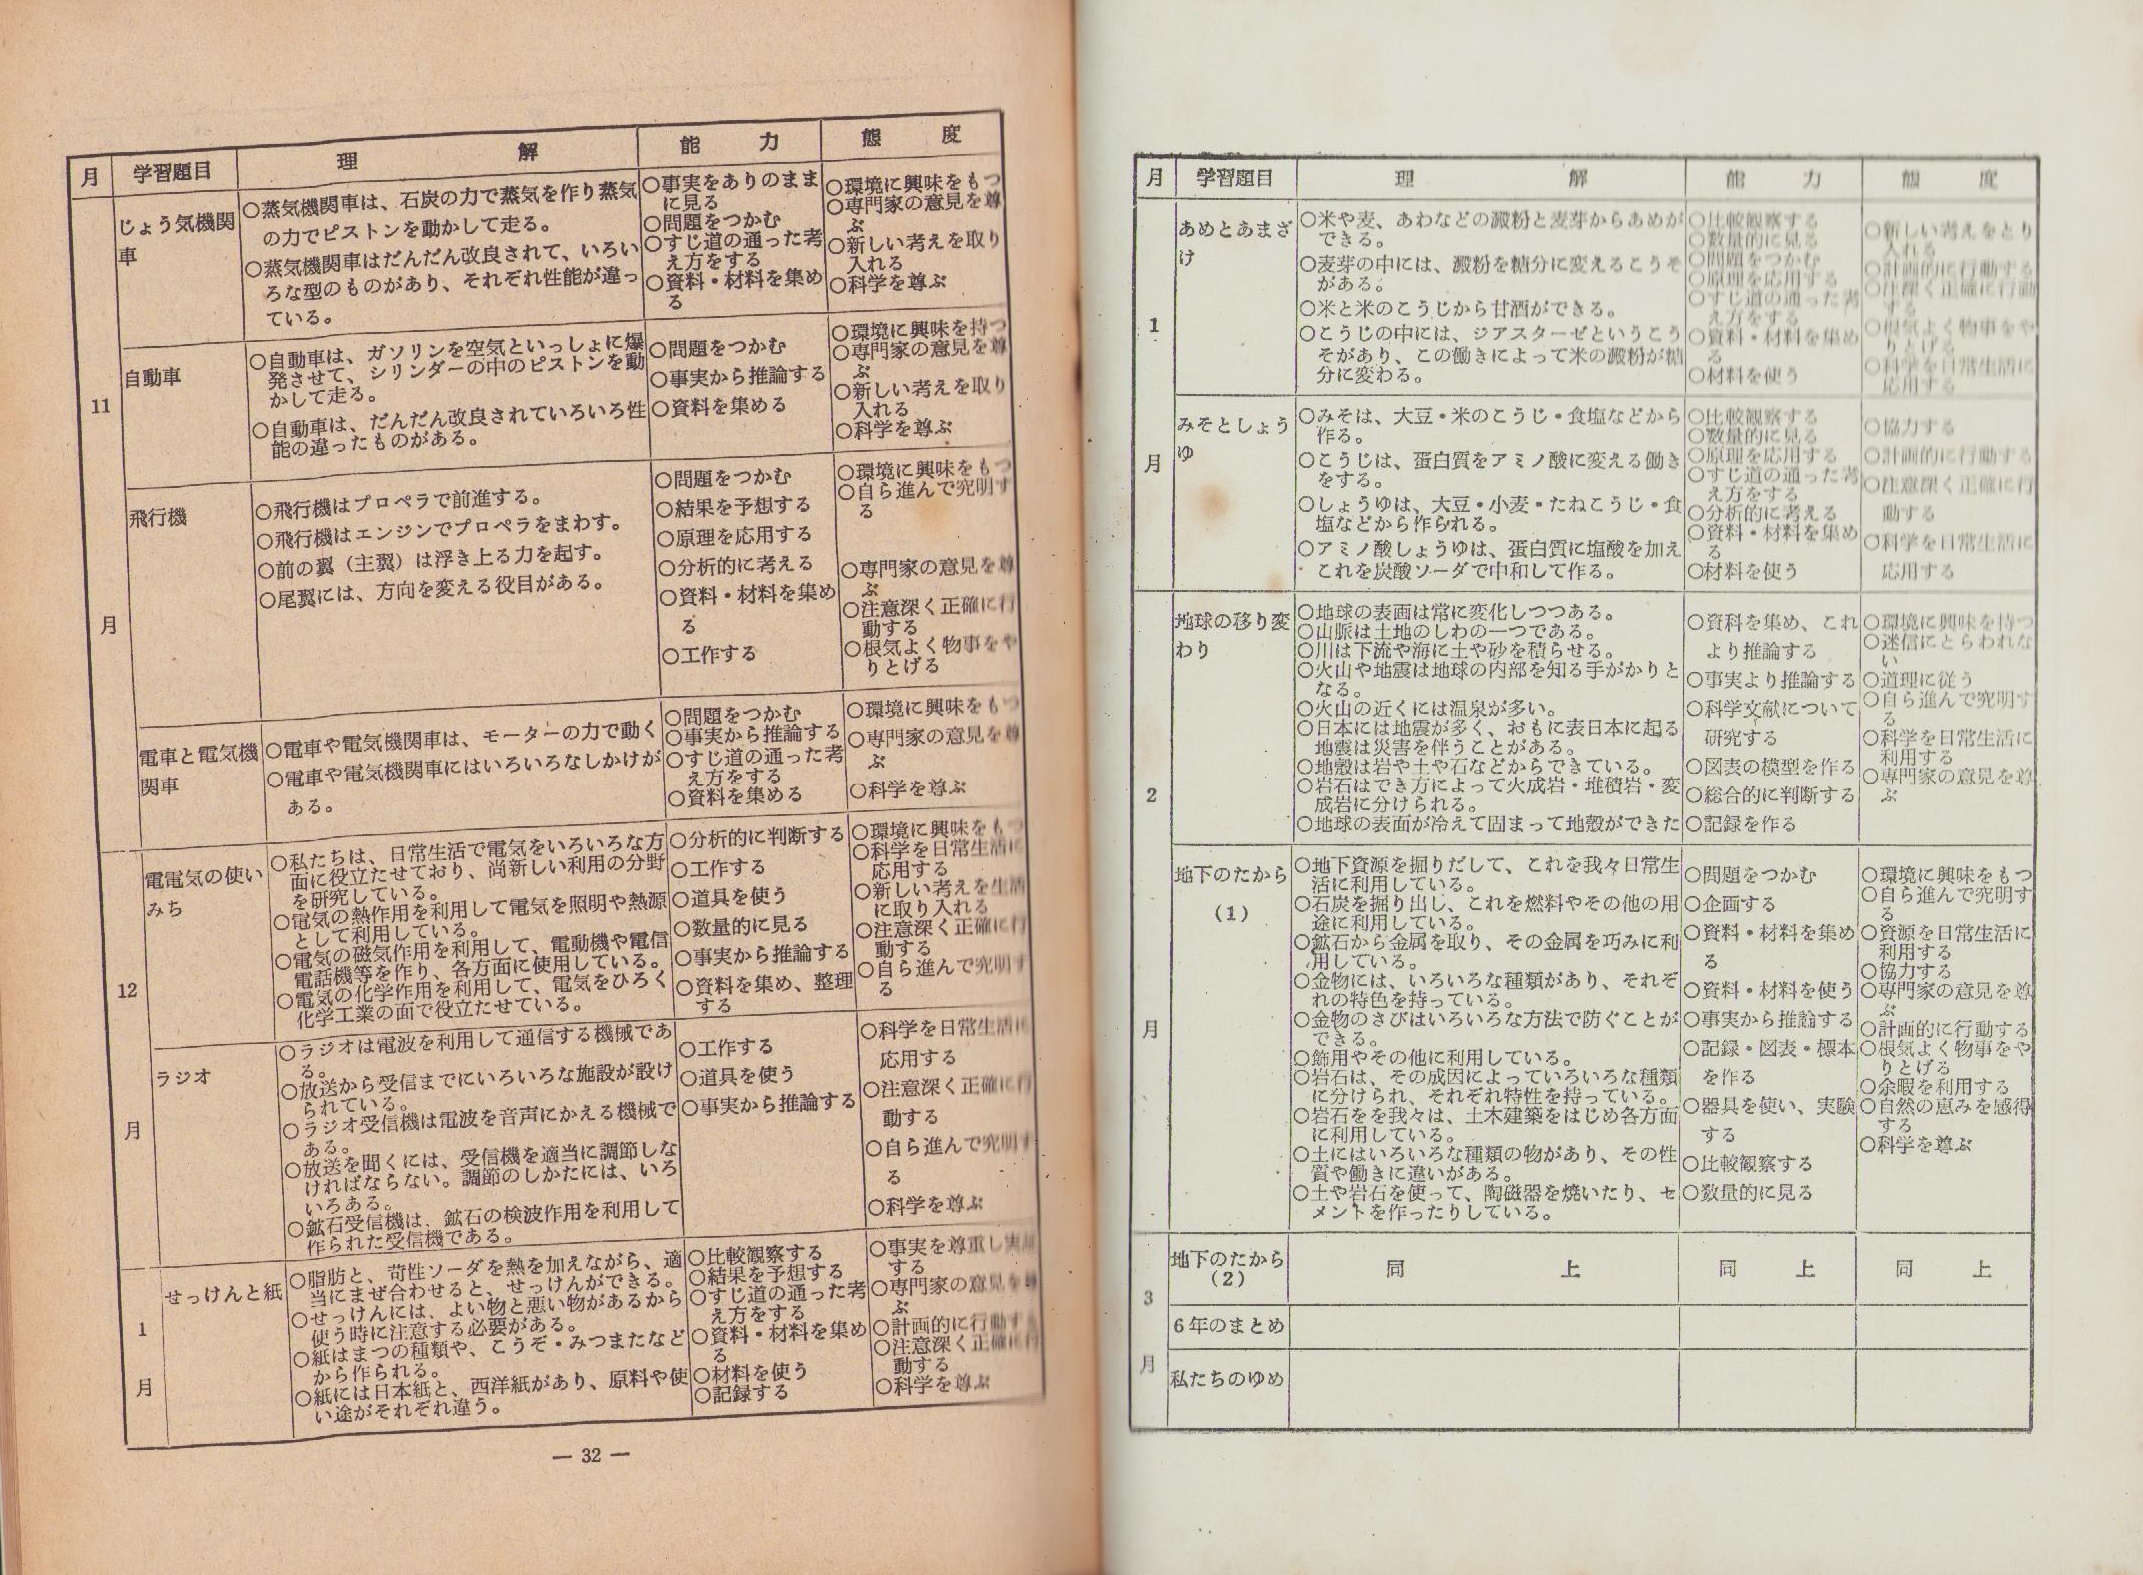 月 学習題目 理解 能力 態度
11月
じょう気機関
車
○蒸気機関車は、石炭の力で蒸気を作り蒸気
の力でピストンを動かして走る。
○蒸気機関車はだんだん改良されて、いろい
ろな型のものがあり、それぞれ性能が違っ
ている。
○事実をありのまま
に見る
○問題をつかむ
○すじ道の通った考
え方をする
○資料・材料を集め
る
○環境に興味をもつ
○専門家の意見を尊
ぶ
○新しい考えを取り
入れる
○科学を尊ぶ
自動車
○自動車は、ガソリンを空気といっしょに爆
発させて、シリンダーの中のピストンを動
かして走る。
○自動車は、だんだん改良されていろいろ性
能の違ったものがある。
○問題をつかむ
○事実から推論する
○資料を集める
○環境に興味を持つ
○専門家の意見を尊
ぶ
○新しい考えを取り
入れる
○科学を尊ぶ
飛行機
○飛行機はプロペラで前進する。
○飛行機はエンジンでプロペラをまわす。
○前の翼（主翼）は浮き上る力を起す。
○尾翼には、方向を変える役目がある。
○問題をつかむ
○結果を予想する
○原理を応用する
○分析的に考える
○資料・材料を集め
る
○工作する
○環境に興味をもつ
○自ら進んで究明す
る
○専門家の意見を尊
ぶ
○注意深く正確に行
動する
○根気よく物事をや
りとげる
電車と電気機
関車
○電車や電気機関車は、モーターの力で動く
○電車や電気機関車にはいろいろなしかけが
ある。
○問題をつかむ
○事実から推論する
○すじ道の通った考
え方をする
○資料を集める
○環境に興味をもつ
○専門家の意見を尊
ぶ
○科学を尊ぶ
12月
電電気の使い
みち
○私たちは、日常生活で電気をいろいろな方
面に役立たせており、尚新しい利用の分野
を研究している。
○電気の熱作用を利用して電気を照明や熱源
として利用している。
○電気の磁気作用を利用して、電動機や電信
電話機等を作り、各方面に使用している。
○電気の化学作用を利用して、電気をひろく
化学工業の面で役立たせている。
○分析的に判断する
○工作する
○道具を使う
○数量的に見る
○事実から推論する
○資料を集め、整理
する
○環境に興味をもつ
○科学を日常生活に
応用する
○新しい考えを生活
に取り入れる
○注意深く正確に行
動する
○自ら進んで究明す
る
ラジオ
○ラジオは電波を利用して通信する機械であ
る。
○放送から受信までにいろいろな施設が設け
られている。
○ラジオ受信機は電波を音声にかえる機械で
ある。
○放送を聞くには、受信機を適当に調節しな
ければならない。調節のしかたには、いろ
いろある。
○鉱石受信機は、鉱石の検波作用を利用して
作られた受信機である。
○工作する
○道具を使う
○事実から推論する
○科学を日常生活に
応用する
○注意深く正確に行
動する
○自ら進んで究明す
る
○科学を尊ぶ
1月
せっけんと紙
○脂肪と、苛性ソーダを熱を加えながら、適
当にまぜ合わせると、せっけんができる。
○せっけんには、よい物と悪い物があるから
使う時に注意する必要がある。
○紙はまつの種類や、こうぞ・みつまたなど
から作られる。
○紙には日本紙と、西洋紙があり、原料や使
い途がそれぞれ違う。
○比較観察する
○結果を予想する
○すじ道の通った考
え方をする
○資料・材料を集め
る
○材料を使う
○記録する
○事実を尊重し
する
○専門家の意見を尊
ぶ
○計画的に行動する
○注意深く正確に行
動する
○科学を尊ぶ
— 32 —
月 学習題目 理解 能力 態度
1月
あめとあまざ
け
○米や麦、あわなどの澱粉と麦芽からあめが
できる。
○麦芽の中には、澱粉を糖分に変えるこうそ
がある。
○米と米のこうじから甘酒ができる。
○こうじの中には、ジアスターゼというこう
そがあり、この働きによって米の澱粉が糖
分に変わる。
○比較観察する
○数量的に見る
○問題をつかむ
○原理を応用する
○すじ道の通った考
え方をする
○資料・材料を集め
る
○材料を使う
○新しい考えをとり
入れる
○計画的に行動する
○注深く正確に行動
する
○根気よく物事をや
りとげる
○科学を日常生活に
応用する
みそとしょう
ゆ
○みそは、大豆・米のこうじ・食塩などから
作る。
○こうじは、蛋白質をアミノ酸に変える働き
をする。
○しょうゆは、大豆・小麦・たねこうじ・食
塩などから作られる。
○アミノ酸しょうゆは、蛋白質に塩酸を加え
これを炭酸ソーダで中和して作る。
○比較観察する
○数量的に見る
○原理を応用する
○すじ道の通った考
え方をする
○分析的に考える
○資料・材料を集め
る
○材料を使う
○協力する
○計画的に行動する
○注意深く正確に行
動する
○科学を日常生活に
応用する
2月
地球の移り変
わり
○地球の表画は常に変化しつつある。
○山脈は土地のしわの一つである。
○川は下流や海に土や砂を積らせる。
○火山や地震は地球の内部を知る手がかりと
なる。
○火山の近くには温泉が多い。
○日本には地震が多く、おもに表日本に起る
地震は災害を伴うことがある。
○地殻は岩や土や石などからできている。
○岩石はでき方によって火成岩・堆積岩・変
成岩に分けられる。
○地球の表面が冷えて固まって地殻ができた
○資料を集め、これ
より推論する
○事実より推論する
○科学文献について
研究する
○図表の模型を作る
○総合的に判断する
○記録を作る
○環境に興味を持つ
○迷信にとらわれな
い
○道理に従う
○自ら進んで究明す
る
○科学を日常生活に
利用する
○専門家の意見を尊
ぶ
地下のたから
（1）
○地下資源を掘りだして、これを我々日常生
活に利用している。
○石炭を掘り出し、これを燃料やその他の用
途に利用している。
○鉱石から金属を取り、その金属を巧みに利
用している。
○金物には、いろいろな種類があり、それぞ
れの特色を持っている。
○金物のさびはいろいろな方法で防ぐことが
できる。
○飾用やその他に利用している。
○岩石は、その成因によっていろいろな種類
に分けられ、それぞれ特性を持っている。
○岩石をを我々は、土木建築をはじめ各方面
に利用している。
○土にはいろいろな種類の物があり、その性
質や働きに違いがある。
○土や岩石を使って、陶磁器を焼いたり、セ
メントを作ったりしている。
○問題をつかむ
○企画する
○資料・材料を集め
る
○資料・材料を使う
○事実から推論する
○記録・図表・標本
を作る
○器具を使い、実験
する
○比較観察する
○数量的に見る
○環境に興味をもつ
○自ら進んで究明す
る
○資源を日常生活に
利用する
○協力する
○専門家の意見を尊
ぶ
○計画的に行動する
○根気よく物事をや
りとげる
○余暇を利用する
○自然の恵みを感得
する
○科学を尊ぶ
3月
地下のたから
（2）
同上 同上 同上
6年のまとめ
私たちのゆめ